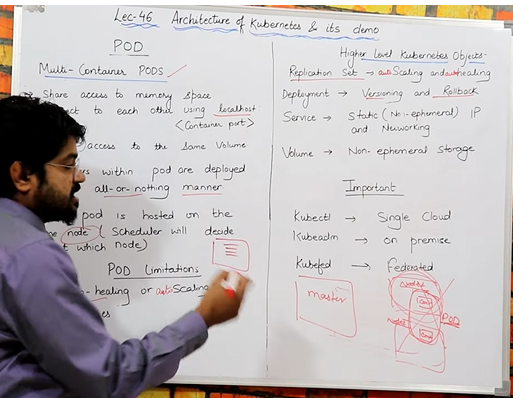 Lec-46 Architecture of Kubernetes & its demo
POD
Multi-Container PODS
→ Share access to memory space
to each other using localhost:
<Container port>
access to the same Volume
within pod are deployed
all-or-nothing manner
pod is hosted on the
node (Scheduler will decide
which node)
POD Limitations
healing or auto Scaling
Higher Level Kubernetes Objects:-
Replication Set → auto Scaling and auto healing
Deployment → Versioning and Rollback
Service → Static (Non-ephemeral) IP
and Networking
Volume → Non-ephemeral Storage
Important
Kubectl → Single Cloud
Kubeadm → on premise
Kubefed → Federated
master
POD